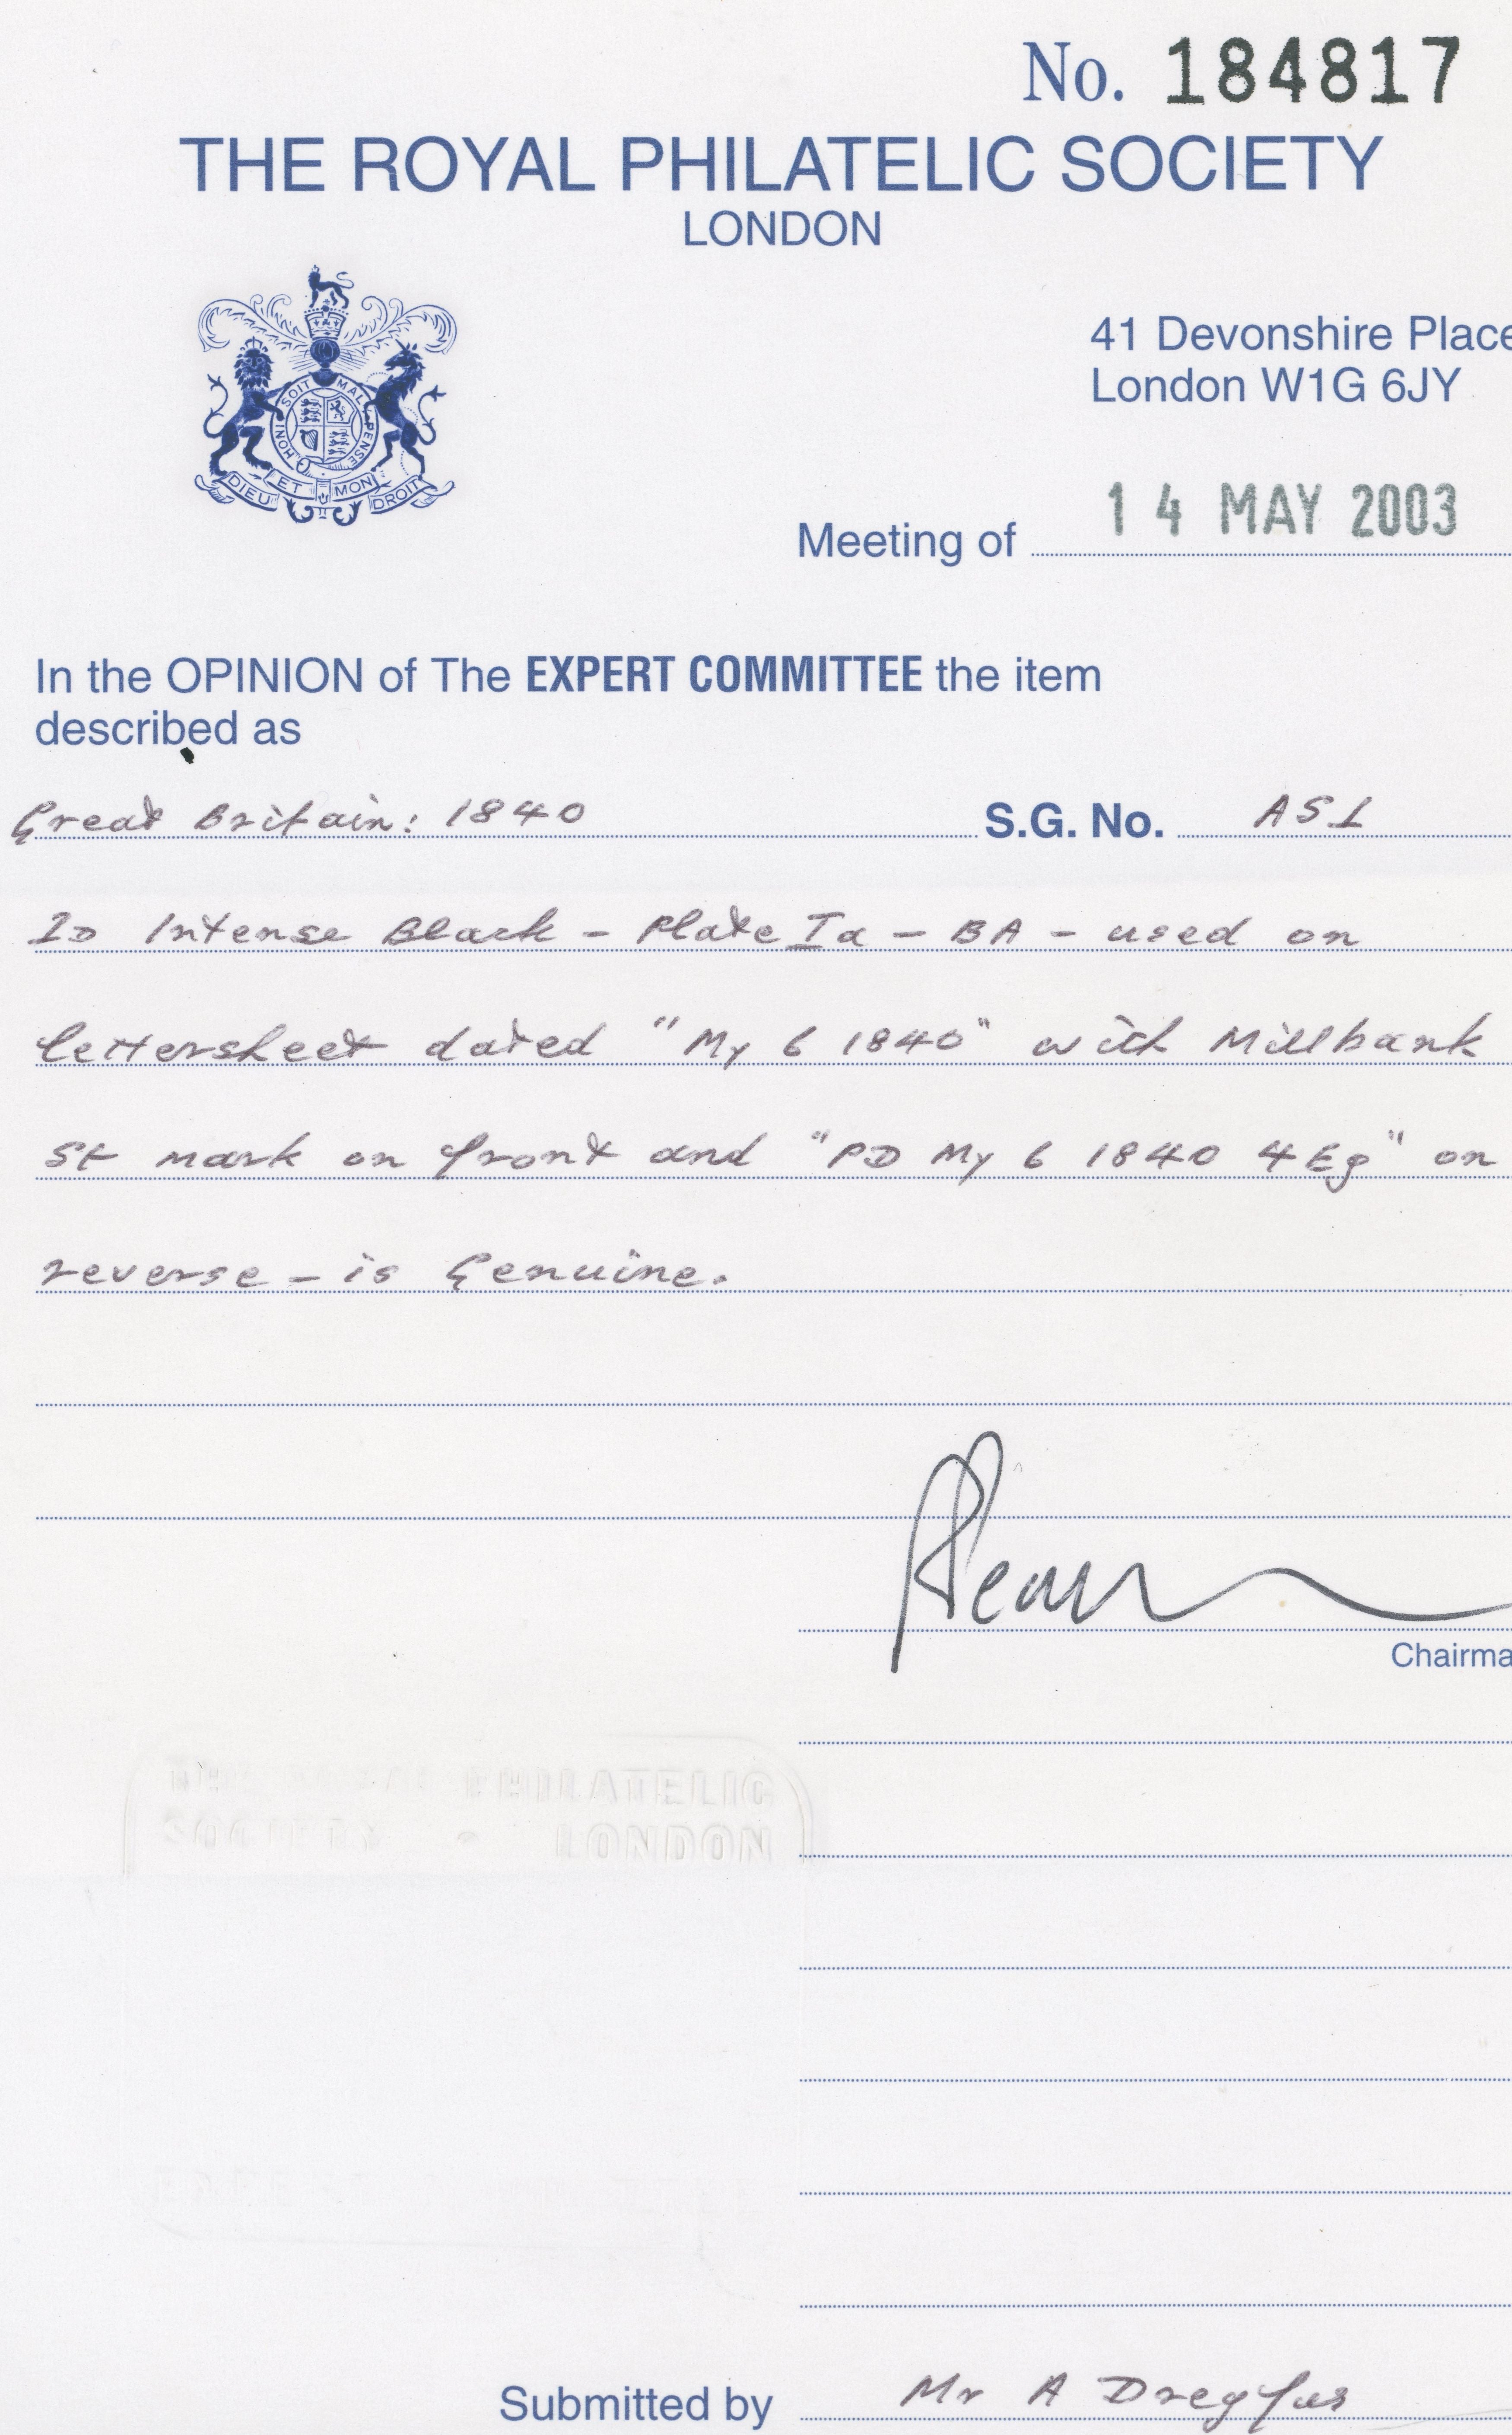 No. 184817
THE ROYAL PHILATELIC SOCIETY
LONDON
HONI SOIT MAL PENSE
DIEU ET MON DROIT
41 Devonshire Place
London W1G 6JY
Meeting of 14 MAY 2003
In the OPINION of The EXPERT COMMITTEE the item
described as
Great Britain: 1840 S.G. No. AS1
1D Intense Black - Plate Ia - BA - used on
lettersheet dated "My 6 1840" with Millbank
St mark on front and "PD My 6 1840 4Eg" on
reverse - is Genuine.
Chairma
PHILATELIC
SOCIETY - LONDON
Submitted by Mr A Dreyfus